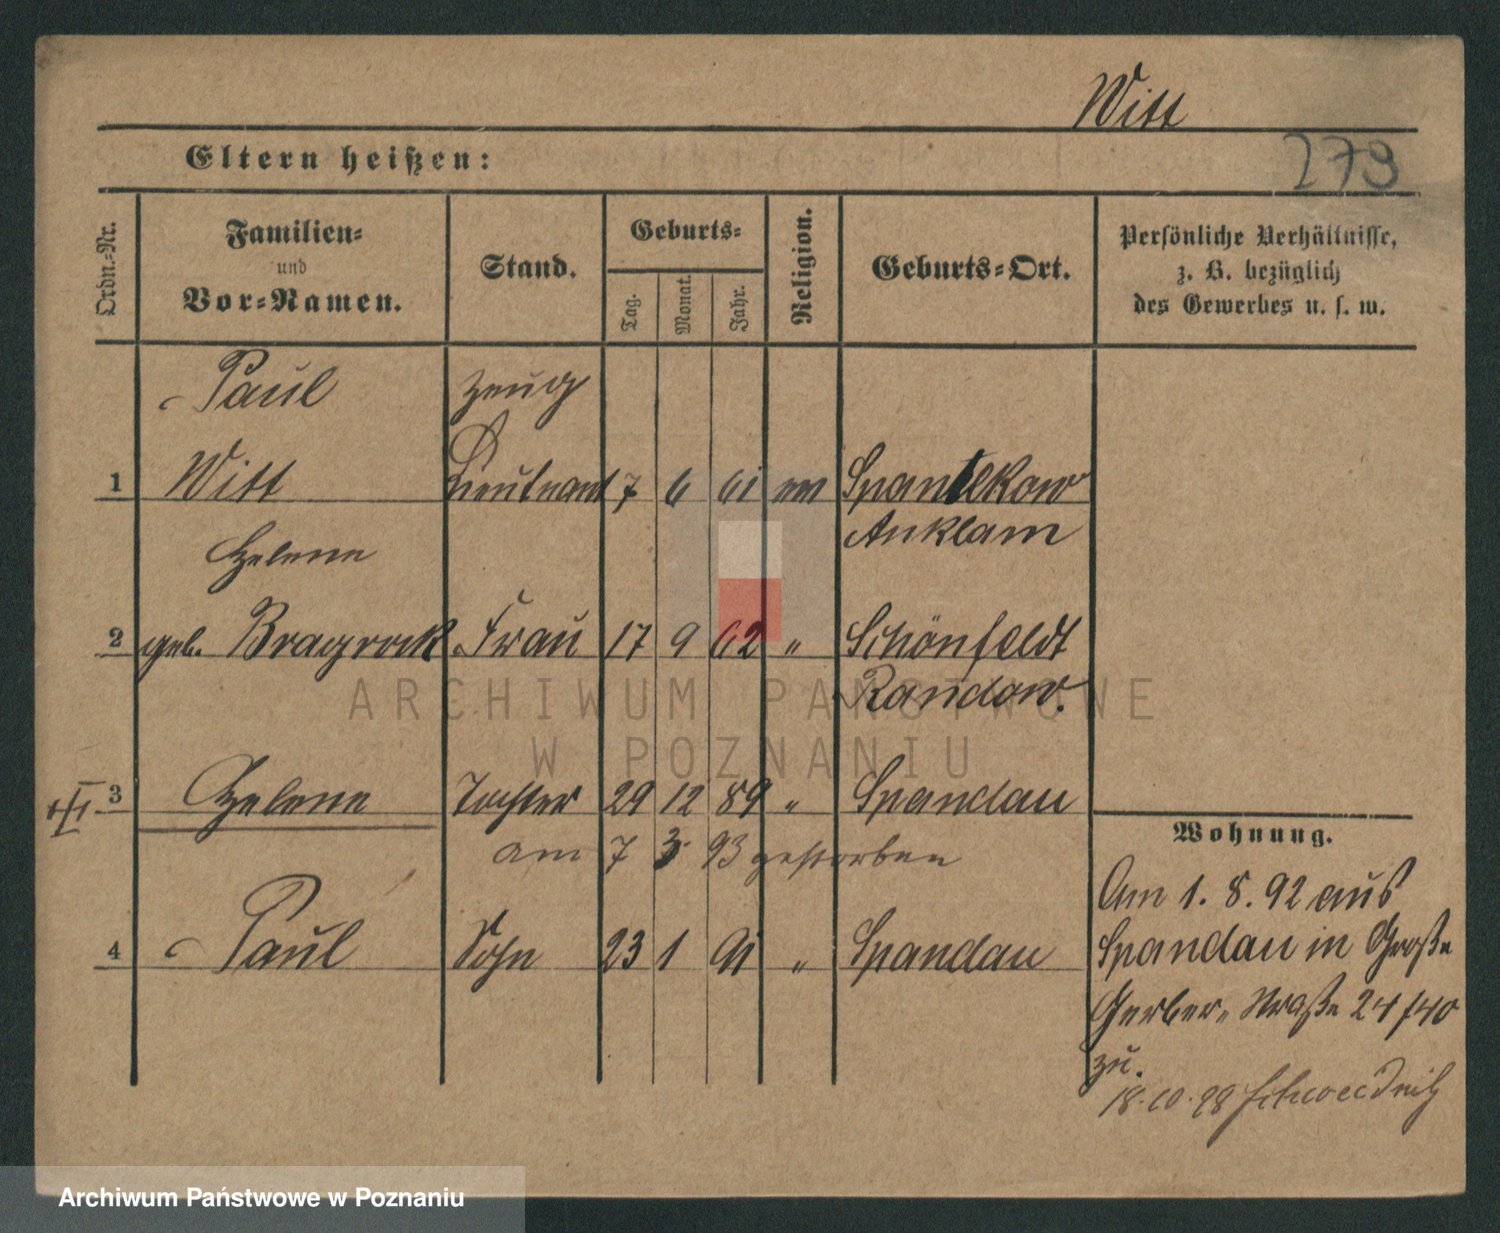 Witt
Eltern heißen:
279
Ordn.-Nr.
Familien-
und
Vor-Namen.
Stand.
Geburts-
Tag.
Monat.
Jahr.
Religion.
Geburts-Ort.
Persönliche Verhältnisse,
z. B. bezüglich
des Gewerbes u. s. w.
Paul Zeug
1 Witt Lieutnant 7 6 61 ev Spantekow
Helene Anklam
2 geb. Frau 17 9 62 " Schönfeldt
Randow.
ARCHIWUM PAŃSTWOWE
W POZNANIU
3 Helene Tochter 29 12 89 " Spandau
am 7 3 93 gestorben
Wohnung.
4 Paul Sohn 23 1 91 " Spandau
Am 1. 8. 92 aus
Spandau in Große
Gerber-Straße 24/40
zu.
18.10.98
Archiwum Państwowe w Poznaniu